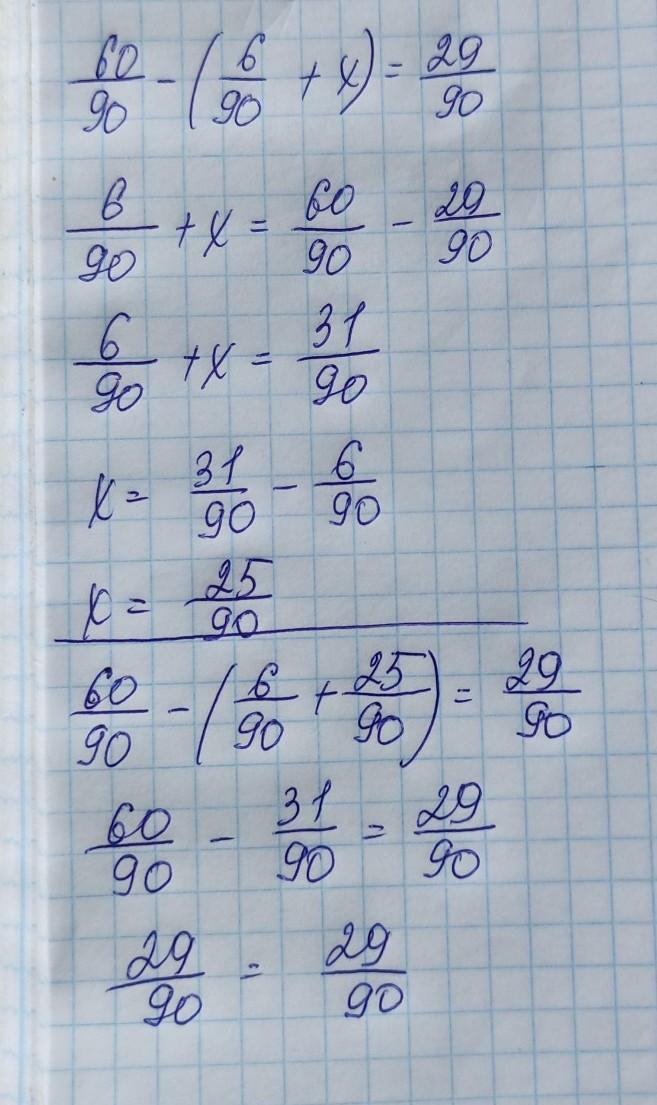 60/90 - (6/90 + x) = 29/90
6/90 + x = 60/90 - 29/90
6/90 + x = 31/90
x = 31/90 - 6/90
x = 25/90
60/90 - (6/90 + 25/90) = 29/90
60/90 - 31/90 = 29/90
29/90 = 29/90